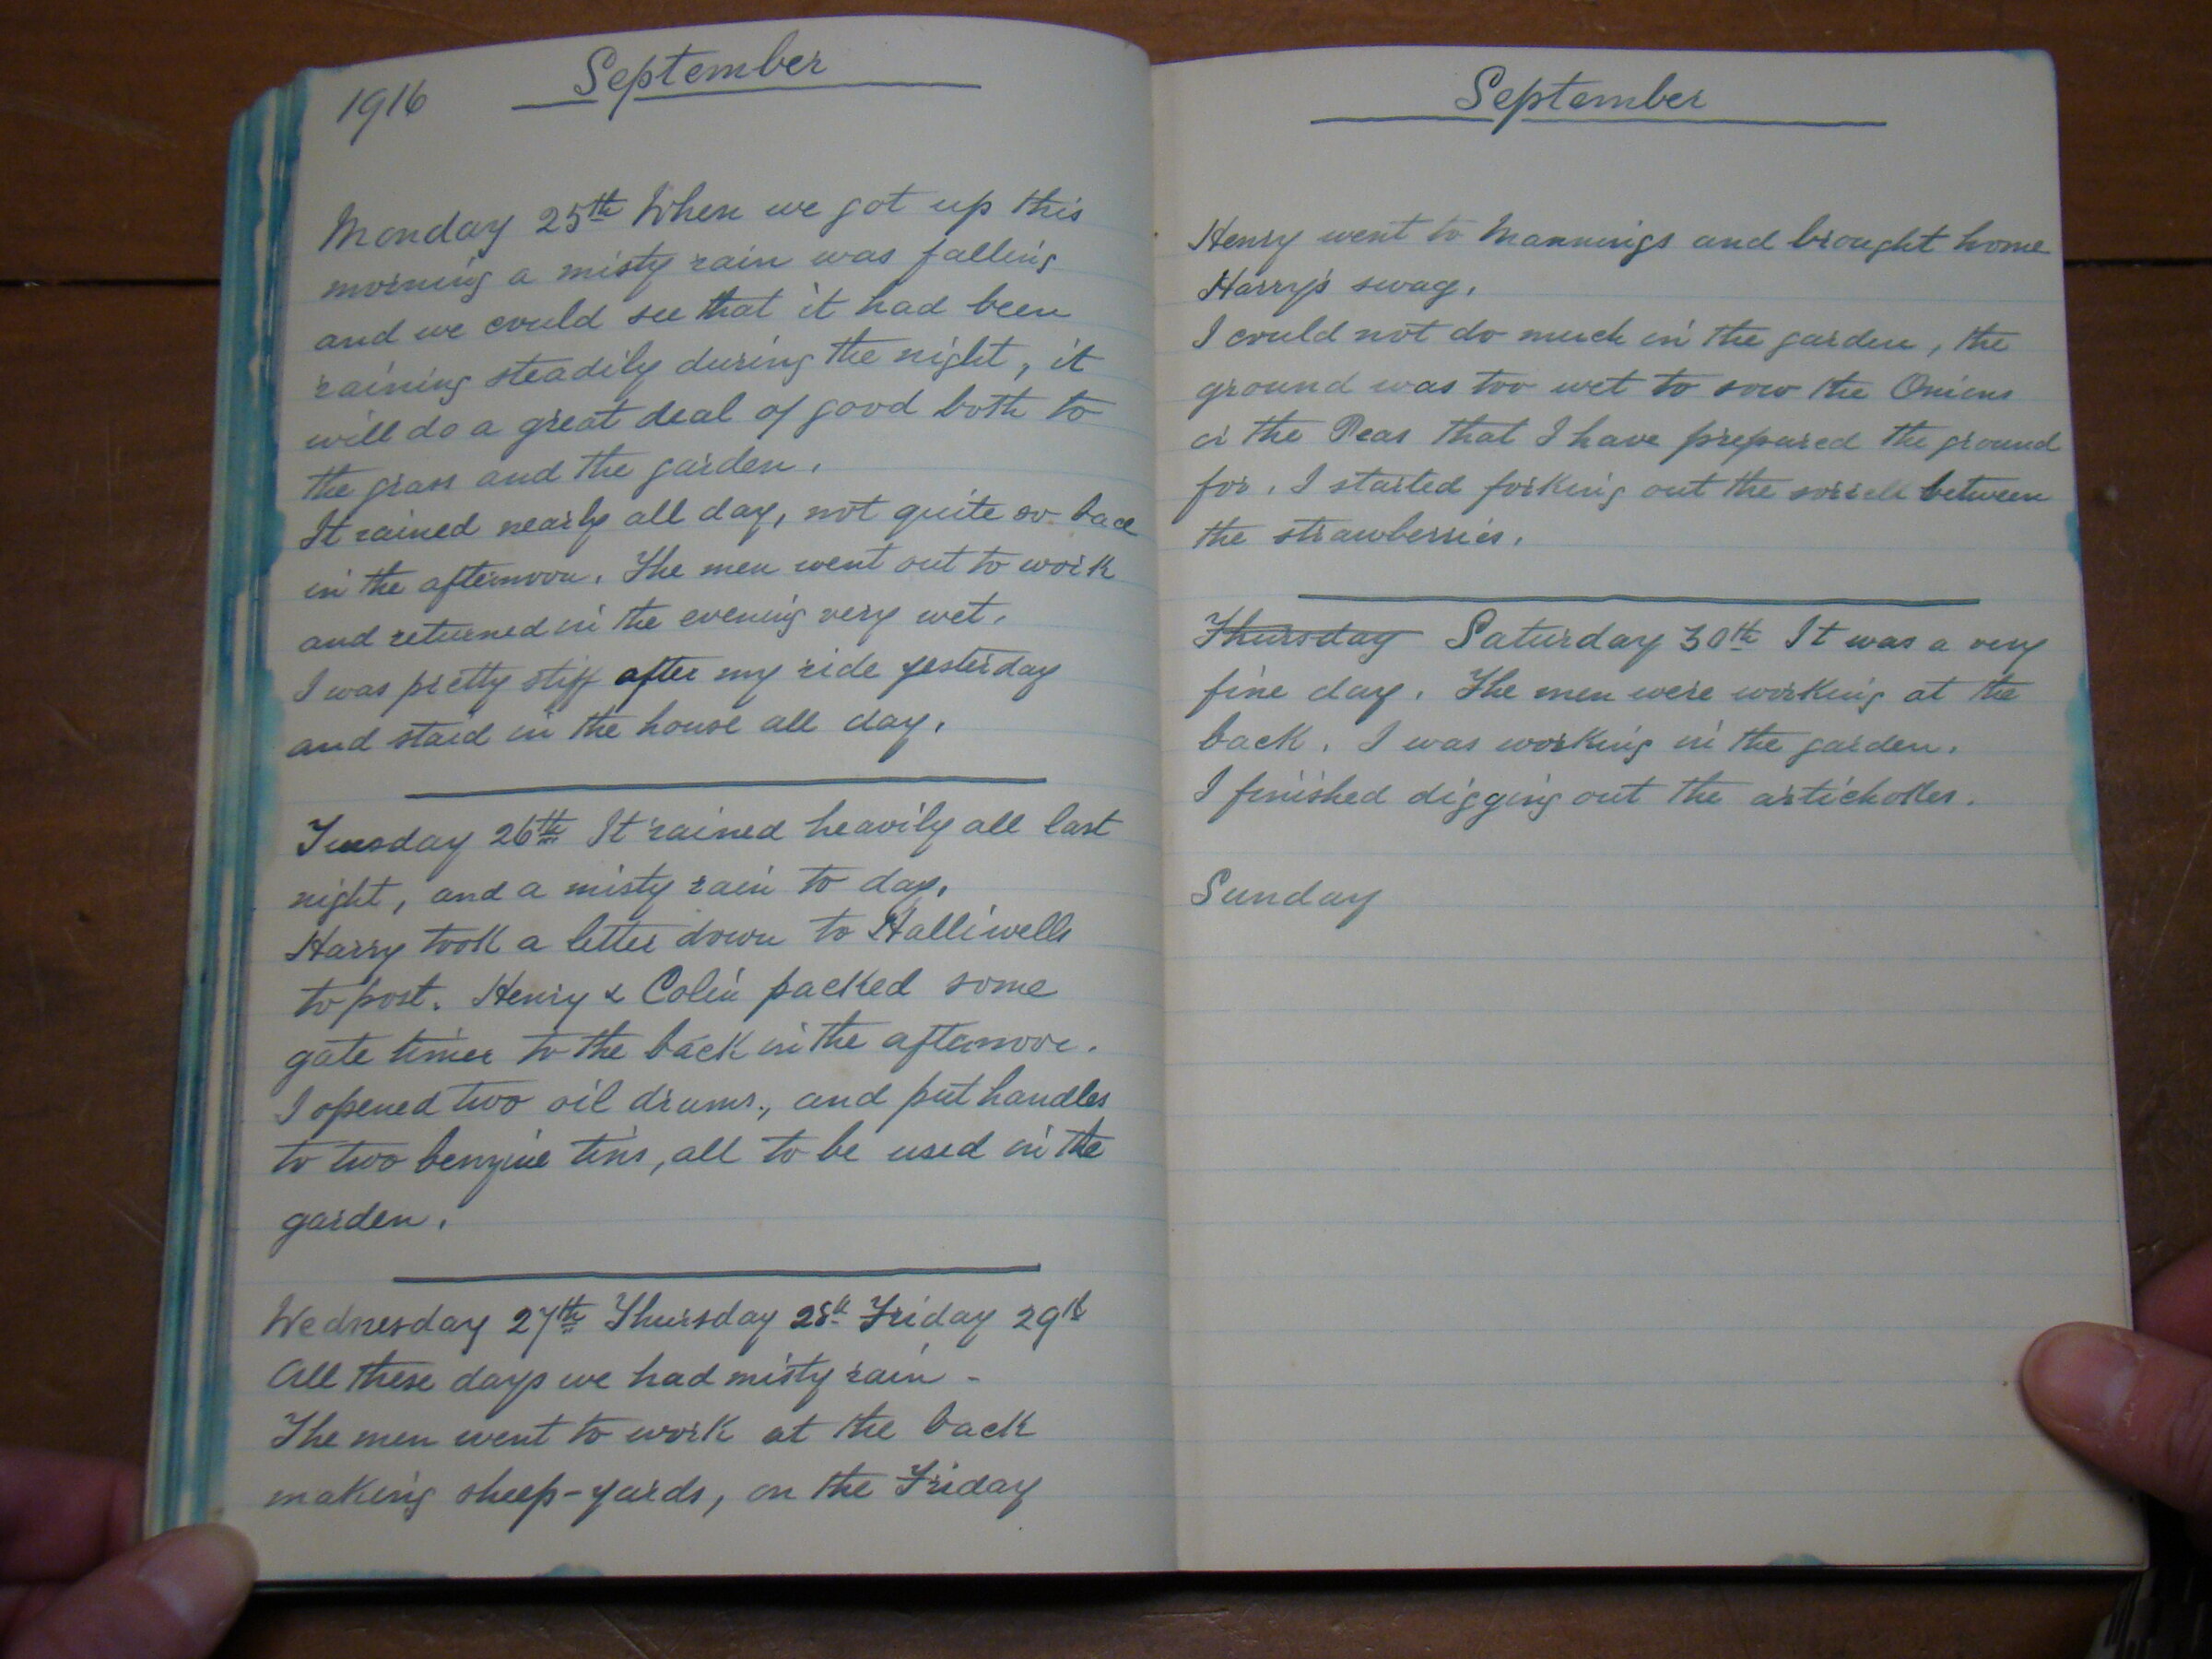 1916 September
Monday 25th When we got up this
morning a misty rain was falling
and we could see that it had been
raining steadily during the night, it
will do a great deal of good both to
the grass and the garden.
It rained nearly all day, not quite so bad
in the afternoon. The men went out to work
and returned in the evening very wet.
I was pretty stiff after my ride yesterday
and staid in the house all day.
Tuesday 26th It rained heavily all last
night, and a misty rain to day.
Harry took a letter down to Halliwells
to post. Henry & Colin packed some
gate timer to the back in the afternoon.
I opened two oil drums, and put handles
to two benzine tins, all to be used in the
garden.
Wednesday 27th Thursday 28th Friday 29th
All these days we had misty rain -
The men went to work at the back
making sheep-yards, on the Friday
September
Henry went to Mannings and brought home
Harry's swag.
I could not do much in the garden, the
ground was too wet to sow the Onions
or the Peas that I have prepared the ground
for. I started forking out the sorrell between
the strawberries.
Thursday Saturday 30th It was a very
fine day. The men were working at the
back. I was working in the garden.
I finished digging out the artichokes.
Sunday